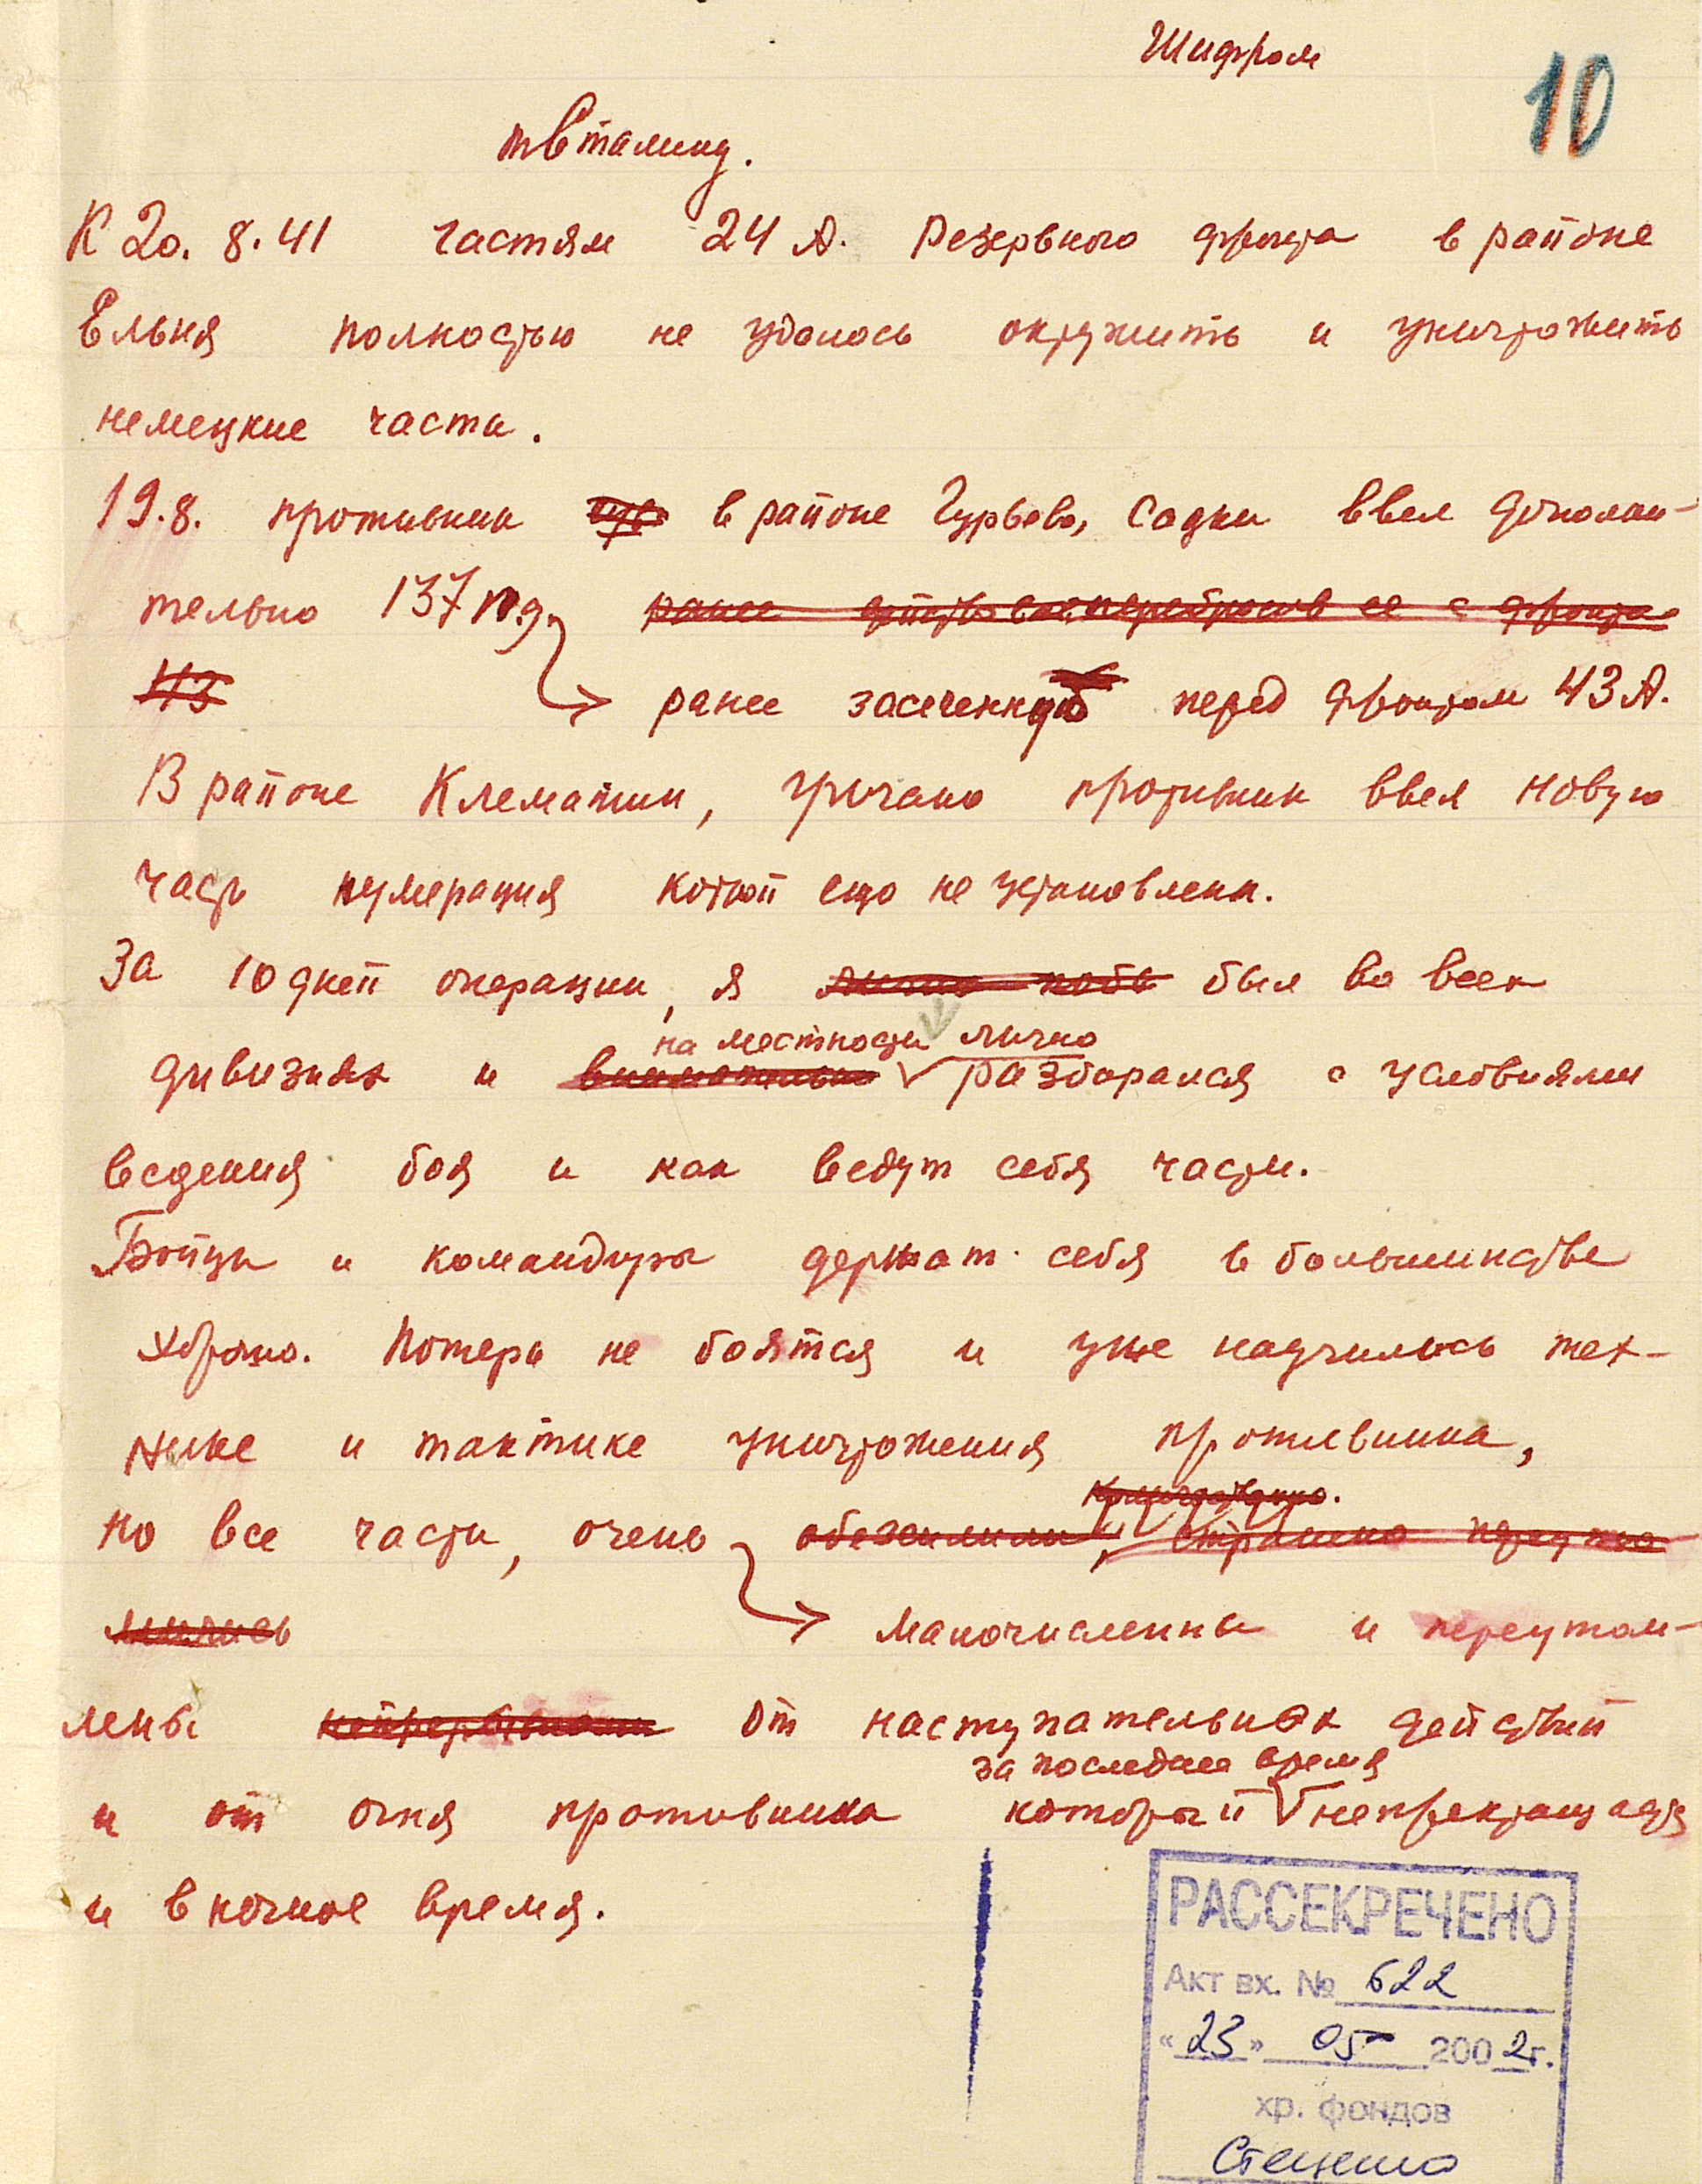 Шифром
10
т. Сталину.
К 20. 8. 41 частям 24 А. Резервного фронта в районе
Ельня полностью не удалось окружить и уничтожить
немецкие части.
19.8. противник в районе Гурьево, Садки ввел дополни-
тельно 137 п.д. ранее перебросив ее с фронта
43
ранее засеченную перед фронтом 43 А.
В районе Клематин, Гричано противник ввел новую
часть нумерация которой еще не установлена.
За 10 дней операции, я лично побы был во всех
на местности лично
дивизиях и внимательно разбирался с условиями
ведения боя и как ведут себя части.
Бойцы и командиры держат себя в большинстве
хорошо. Потерь не боятся и уже научились тех-
нике и тактике уничтожения противника,
количественно.
но все части, очень страшно переуто
мились малочисленны и переутом-
лены непрерывными от наступательных действий
за последнее время
и от огня противника который непрекращается
и в ночное время.
РАССЕКРЕЧЕНО
Акт вх. № 622
«23» 05 2002г.
хр. фондов